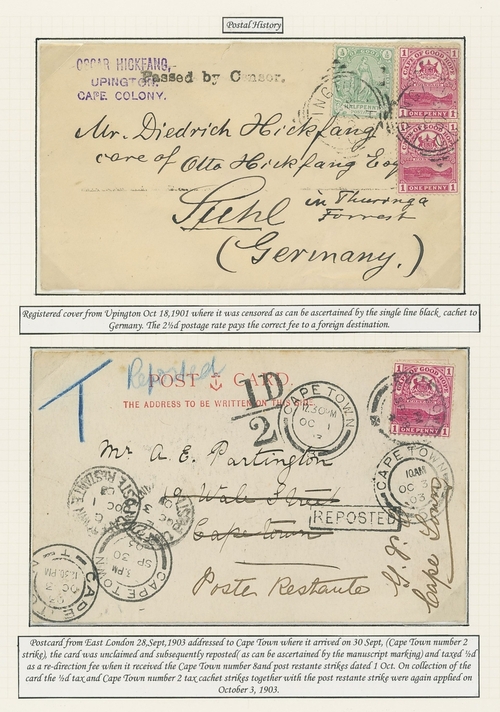 Postal History
OSCAR HICKFANG,
UPINGTON.
CAPE. COLONY.
Passed by Censor.
CAPE OF GOOD HOPE
HALFPENNY
CAPE OF GOOD HOPE
ONE PENNY
ONE PENNY
Mr. Diedrich Hickfang
care of Otto Hickfang Esq
Suhl in Thuringa
Forrest
(Germany.)
Registered cover from Upington Oct 18,1901 where it was censored as can be ascertained by the single line black cachet to
Germany. The 2½d postage rate pays the correct fee to a foreign destination.
T
Reposted
POST CARD.
THE ADDRESS TO BE WRITTEN ON THIS SIDE.
1D
2
CAPE TOWN
OC 1
CAPE OF GOOD HOPE
ONE PENNY
CAPE TOWN
10AM
OC 3
03
Mr A. E. Partington
Wale Street
Cape Town
REPOSTED
Poste Restante
G.P.O.
Cape Town
CAPE TOWN
3.PM
SP 30
03
CAPE TOWN
12.30.PM
OC 3
Postcard from East London 28,Sept,1903 addressed to Cape Town where it arrived on 30 Sept, (Cape Town number 2
strike), the card was unclaimed and subsequently reposted( as can be ascertained by the manuscript marking) and taxed ½d
as a re-direction fee when it received the Cape Town number 8and post restante strikes dated 1 Oct. On collection of
the card the ½d tax and Cape Town number 2 tax cachet strikes together with the post restante strike were again applied on
October 3, 1903.